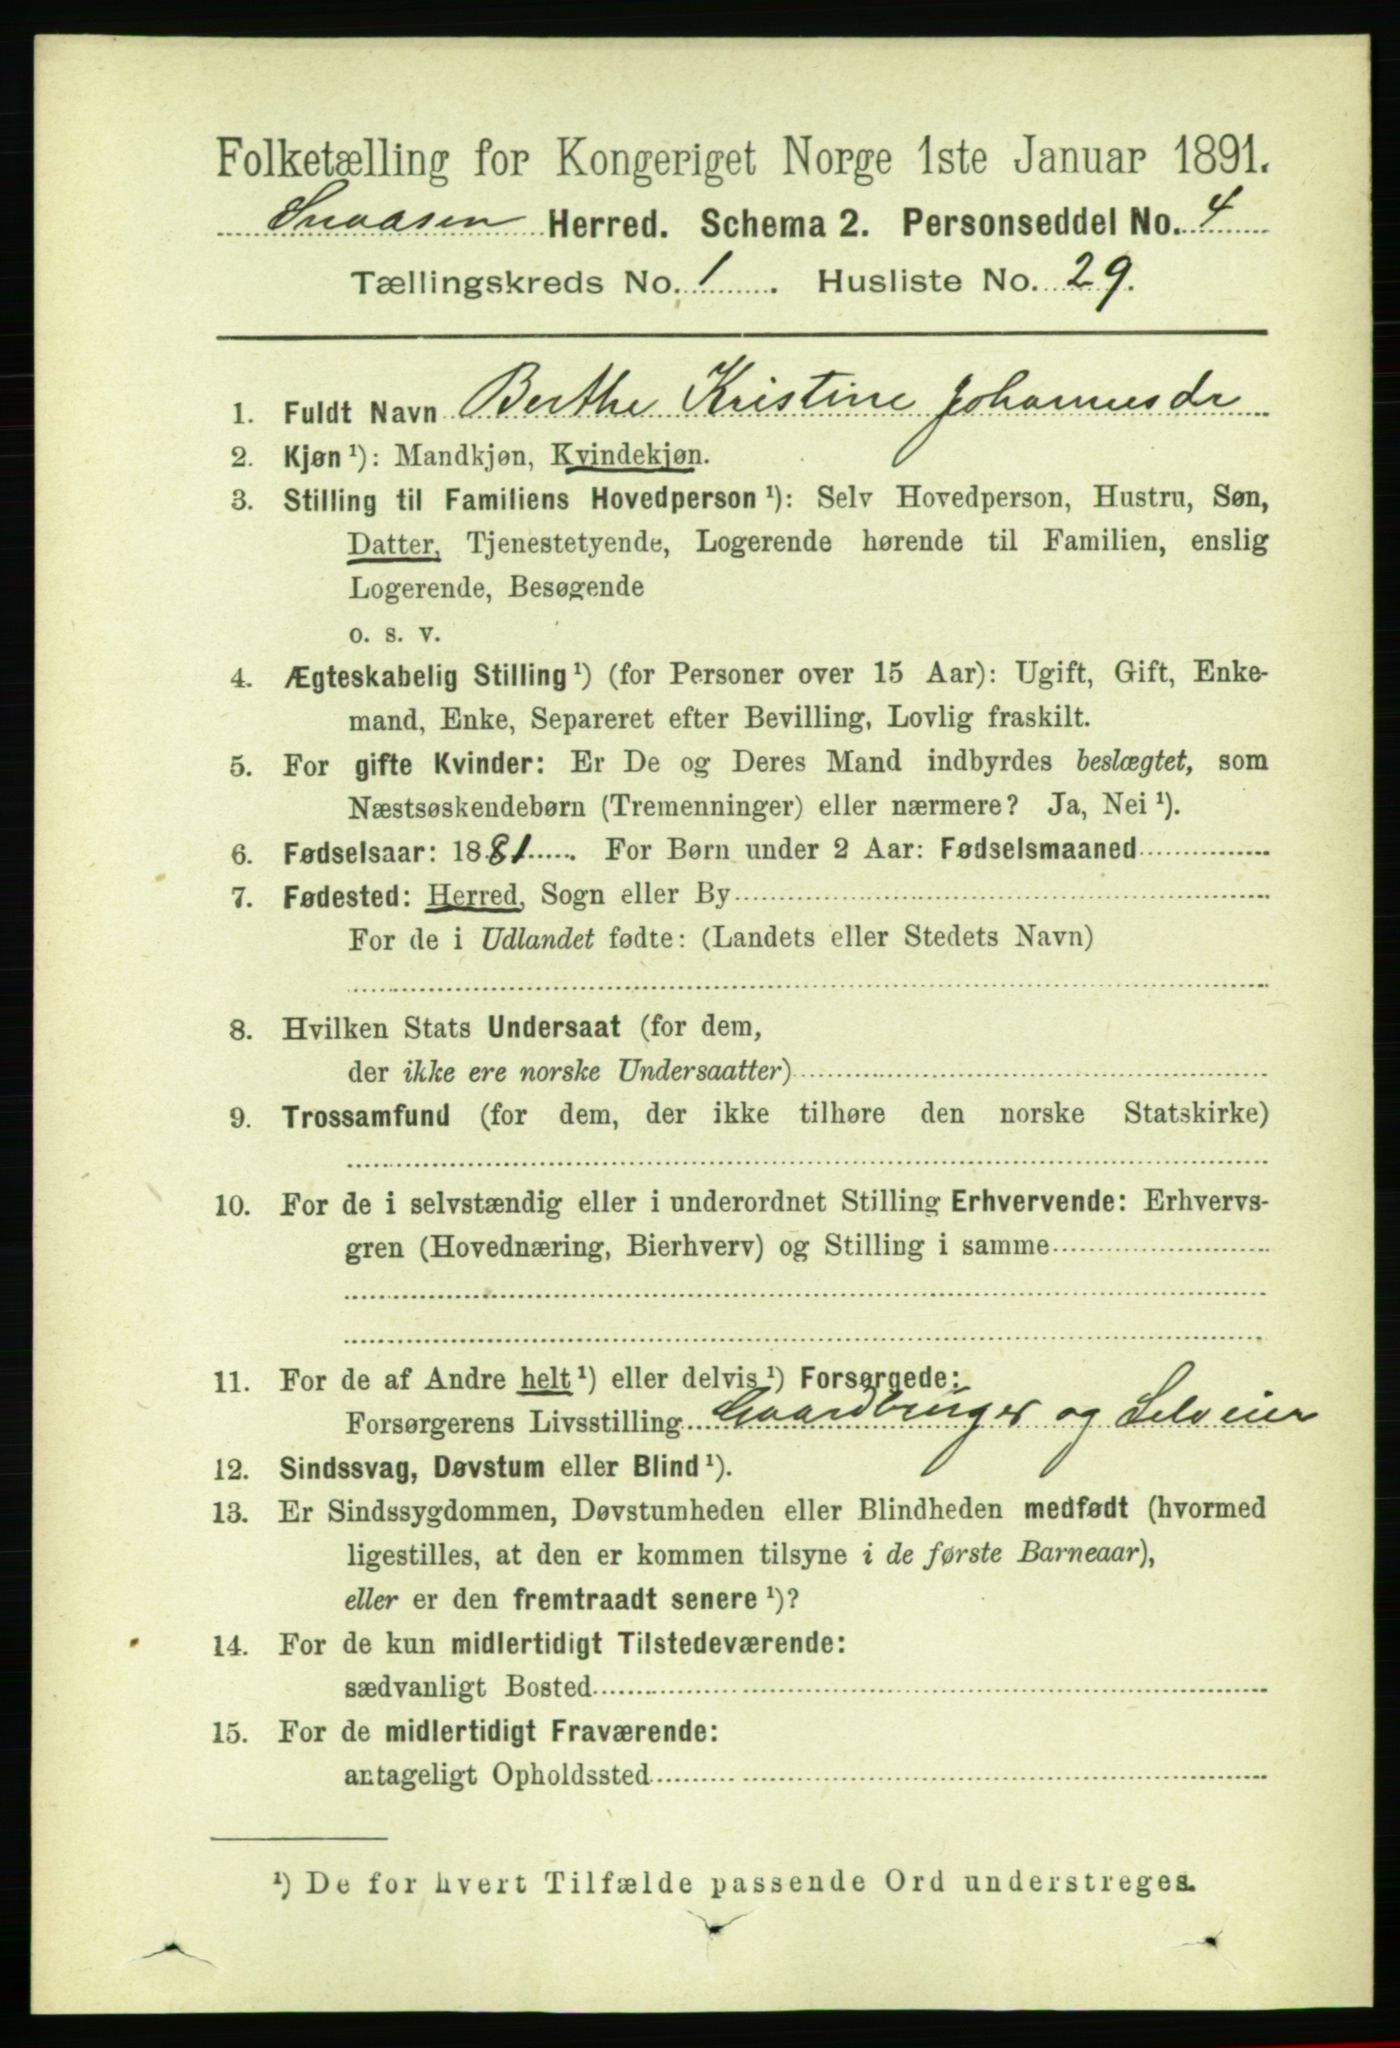 Folketælling for Kongeriget Norge 1ste Januar 1891.
Snaasen Herred. Schema 2. Personseddel No. 4
Tællingskreds No. 1. Husliste No. 29.
1. Fuldt Navn Berthe Kristine Johannesdr
2. Kjøn ¹): Mandkjøn, Kvindekjøn.
3. Stilling til Familiens Hovedperson ¹): Selv Hovedperson, Hustru, Søn,
Datter, Tjenestetyende, Logerende hørende til Familien, enslig
Logerende, Besøgende
o. s. v.
4. Ægteskabelig Stilling ¹) (for Personer over 15 Aar): Ugift, Gift, Enke-
mand, Enke, Separeret efter Bevilling, Lovlig fraskilt.
5. For gifte Kvinder: Er De og Deres Mand indbyrdes beslægtet, som
Næstsøskendebørn (Tremenninger) eller nærmere? Ja, Nei ¹).
6. Fødselsaar: 1881. For Børn under 2 Aar: Fødselsmaaned
7. Fødested: Herred, Sogn eller By
For de i Udlandet fødte: (Landets eller Stedets Navn)
8. Hvilken Stats Undersaat (for dem,
der ikke ere norske Undersaatter)
9. Trossamfund (for dem, der ikke tilhøre den norske Statskirke)
10. For de i selvstændig eller i underordnet Stilling Erhvervende: Erhvervs-
gren (Hovednæring, Bierhverv) og Stilling i samme
11. For de af Andre helt ¹) eller delvis ¹) Forsørgede:
Forsørgerens Livsstilling Gaardbruger og Selveier
12. Sindssvag, Døvstum eller Blind ¹).
13. Er Sindssygdommen, Døvstumheden eller Blindheden medfødt (hvormed
ligestilles, at den er kommen tilsyne i de første Barneaar),
eller er den fremtraadt senere ¹)?
14. For de kun midlertidigt Tilstedeværende:
sædvanligt Bosted
15. For de midlertidigt Fraværende:
antageligt Opholdssted
¹) De for hvert Tilfælde passende Ord understreges.